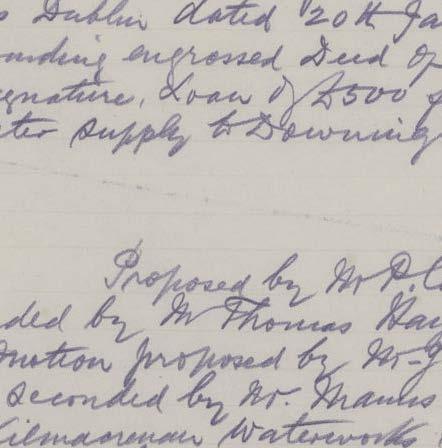 Dublin dated 20th Ja
nding engrossed Deed of
gnature, Loan of £500 f
ter supply to Downing
Proposed by Mr P. C
ded by Mr Thomas Ha
motion proposed by Mr. J
seconded by Mr. Manus
Kilmacrenan Waterworks